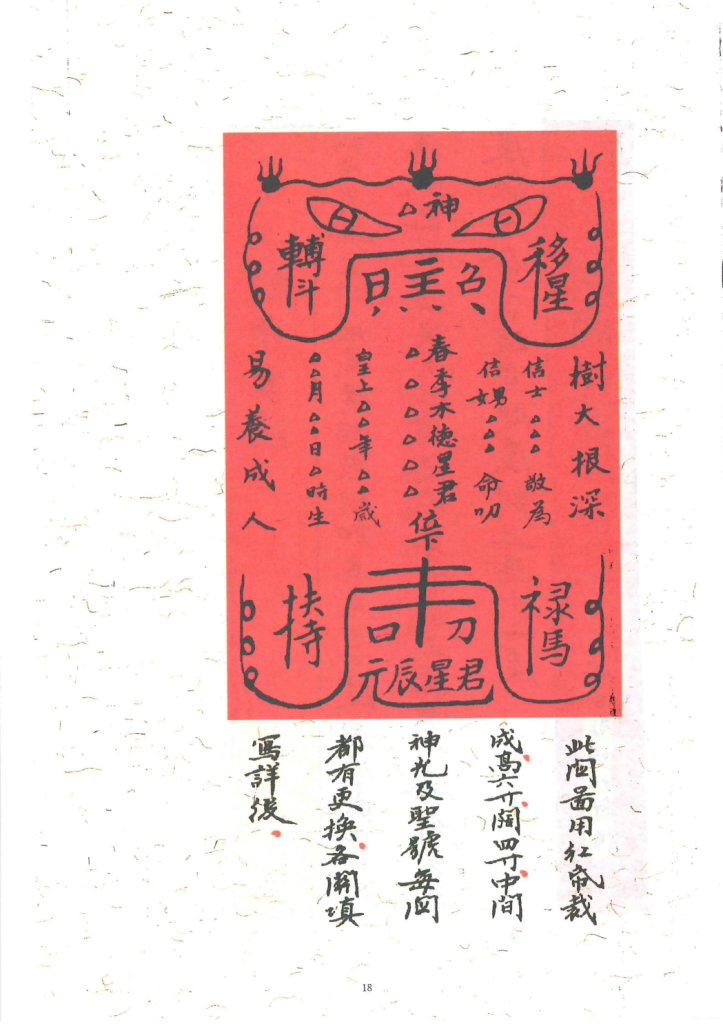 △神
移星
轉斗
日主
樹大根深
信士△△△敬為
信女△△△命叩
春季木德星君
△△△△△位下
皇上△△年△△歲
△△月△△日△時生
易養成人
祿馬
扶持
口
刀
元辰星君
用紅帋裁
成高六寸闊四寸中間
神九及聖號每
都有更換各開填
寫詳後
18